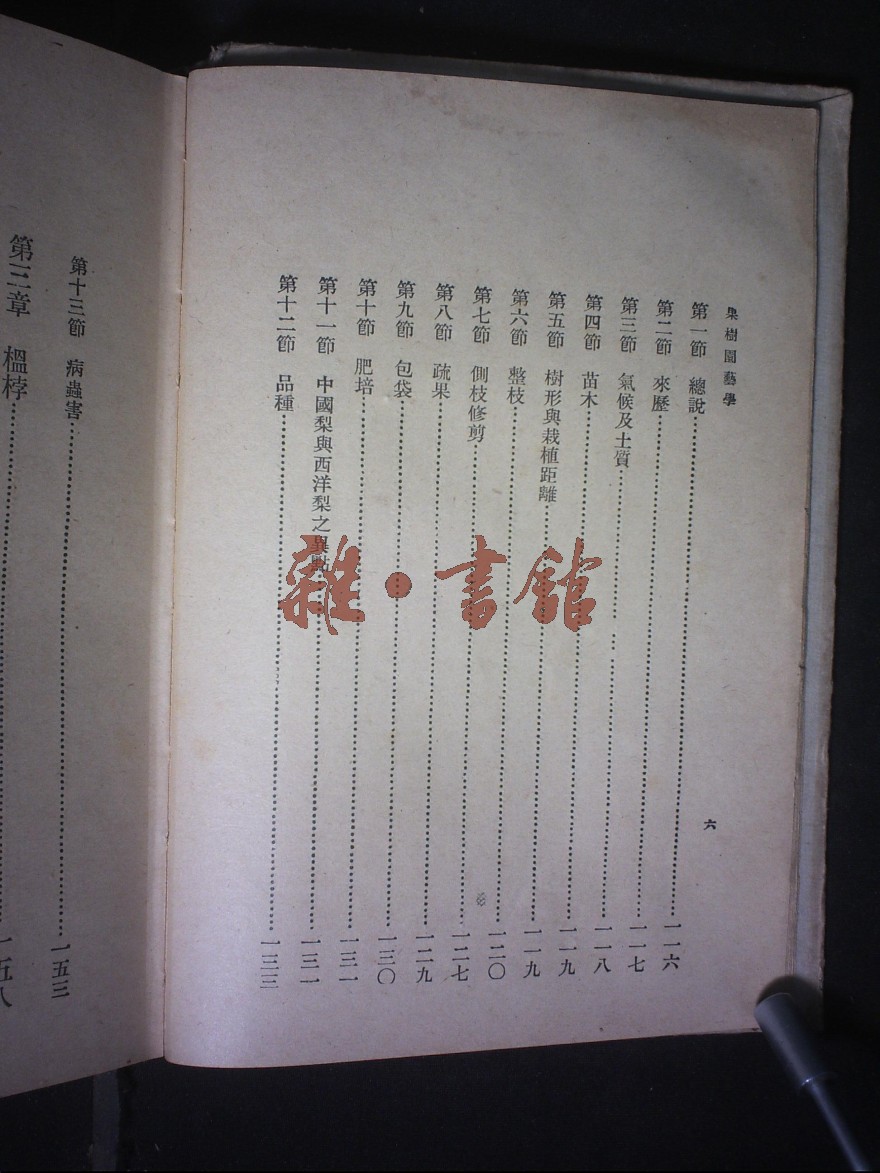 果樹園藝學
六
第一節 總說……一一六
第二節 來歷……一一七
第三節 氣候及土質……一一八
第四節 苗木……一一九
第五節 樹形與栽植距離……一一九
第六節 整枝……一二〇
第七節 側枝修剪……一二七
第八節 疏果……一二九
第九節 包袋……一三〇
第十節 肥培……一三一
第十一節 中國梨與西洋梨之異點……一三一
第十二節 品種……一三三
第十三節 病蟲害……一五三
第三章 榲桲……一五八
雜·書館